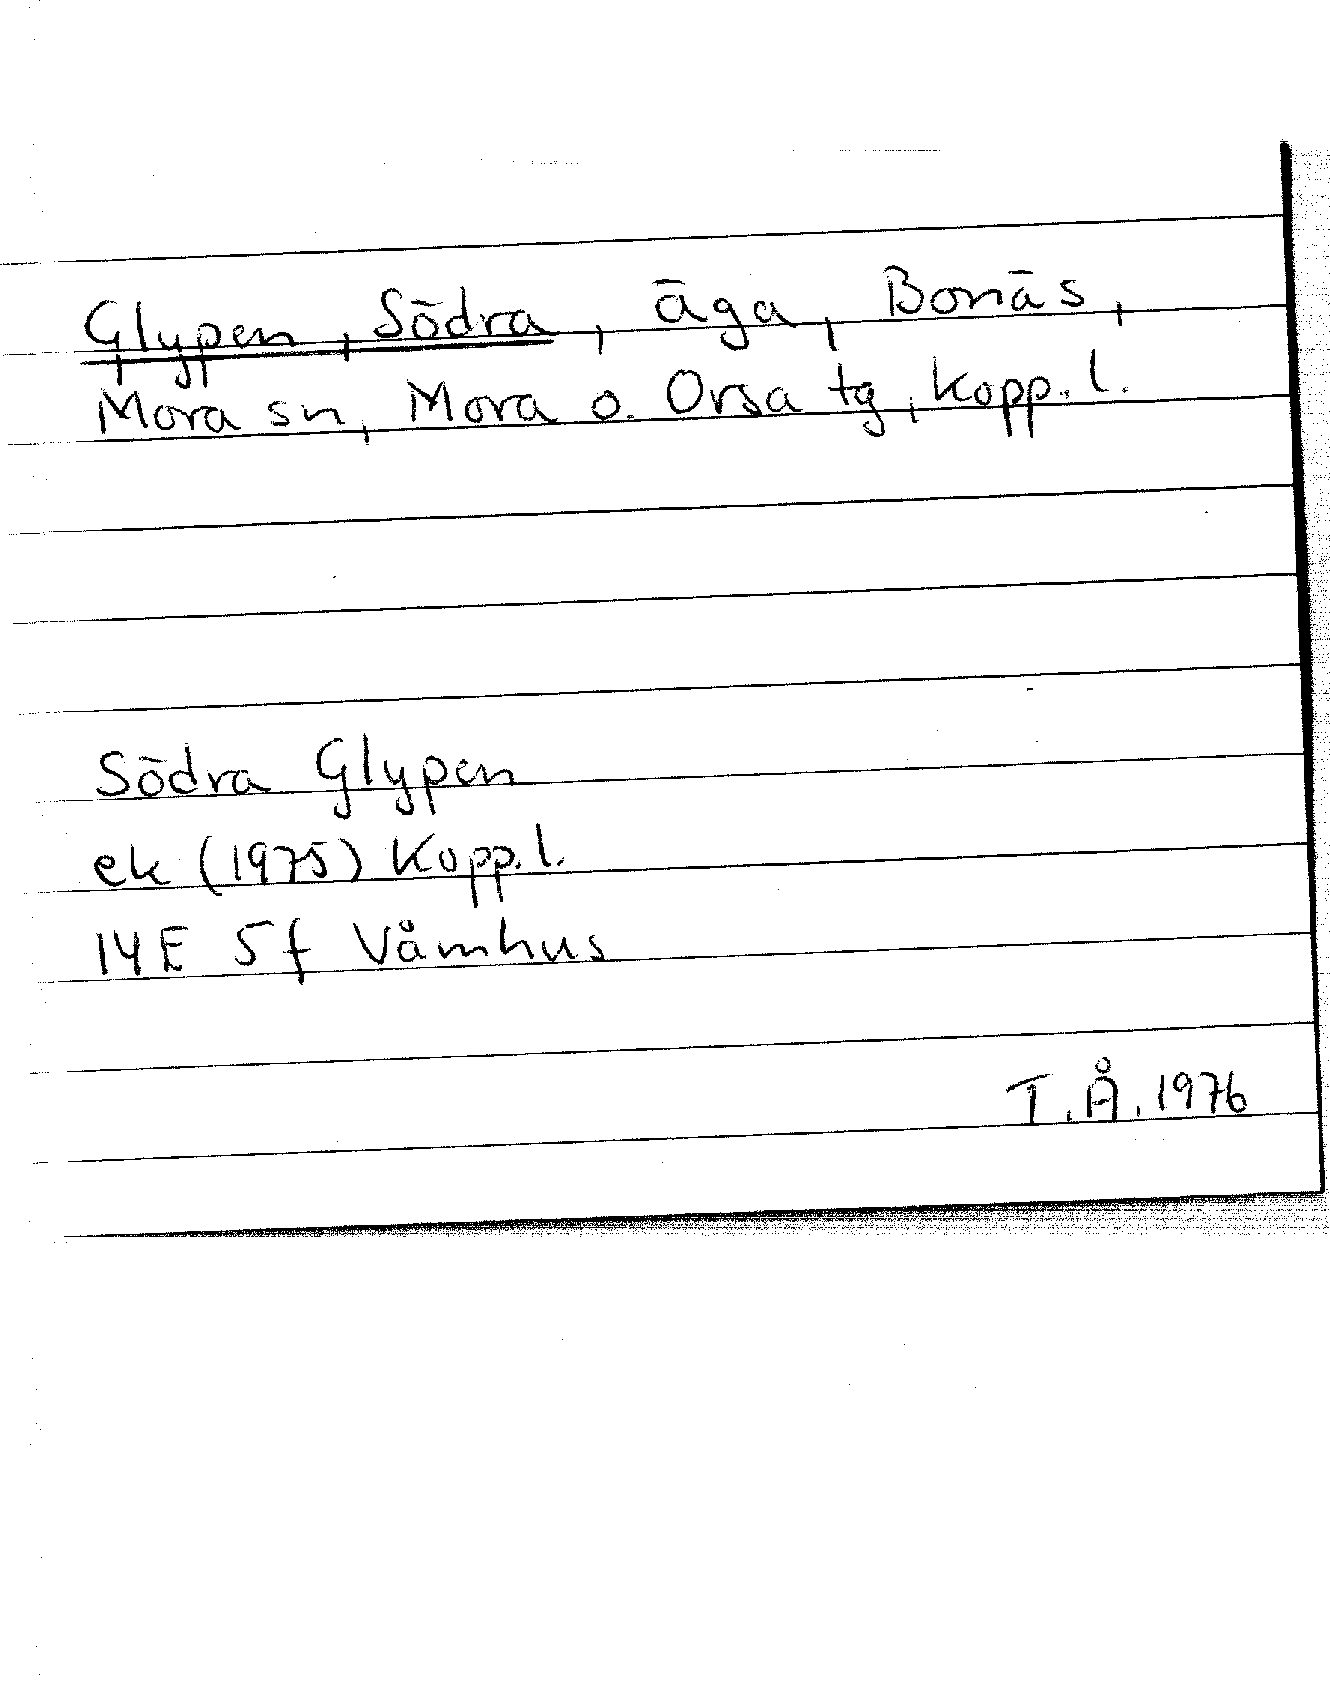 Glypen, Södra, äga, Bonäs,
Mora sn, Mora o. Orsa tg, Kopp. l.
Södra Glypen
ek (1975) Kopp. l.
14E 5f Våmhus
T.Å. 1976